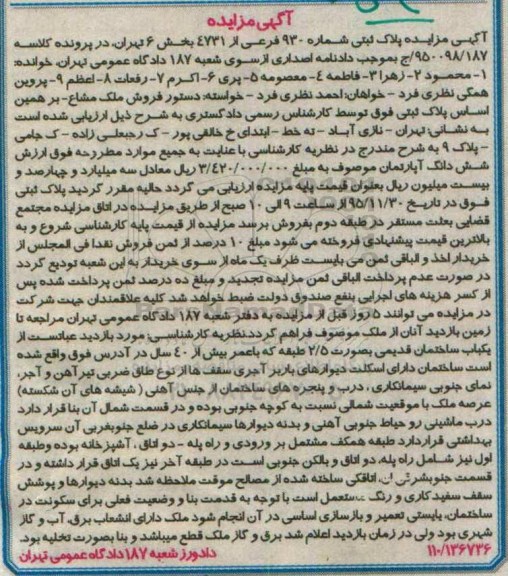 آگهی مزایده
آگهی مزایده پلاک ثبتی شماره ۹۳۰ فرعی از ۴۷۳۱ بخش ۶ تهران، در پرونده کلاسه
۹۵۰۰۹۸/۱۸۷/ج بموجب دادنامه اصداری ازسوی شعبه ۱۸۷ دادگاه عمومی تهران، خوانده:
۱- محمود ۲- زهرا ۳- فاطمه ۴- معصومه ۵- پری ۶- اکرم ۷- رفعات ۸- اعظم ۹- پروین
همگی نظری فرد - خواهان: احمد نظری فرد - خواسته: دستور فروش ملک مشاع- بر همین
اساس پلاک ثبتی فوق توسط کارشناس رسمی دادگستری به شرح ذیل ارزیابی شده است
به نشانی: تهران - نازی آباد - ته خط - ابتدای خ خالقی پور - ک رجبعلی زاده - ک جامی
- پلاک ۹ به شرح مندرج در نظریه کارشناسی با عنایت به جمیع موارد مطروحه فوق ارزش
شش دانگ آپارتمان موصوف به مبلغ ۳/۴۲۰/۰۰۰/۰۰۰ ریال معادل سه میلیارد و چهارصد و
بیست میلیون ریال بعنوان قیمت پایه مزایده ارزیابی می گردد حالیه مقرر گردید پلاک ثبتی
فوق در تاریخ ۹۵/۱۱/۳۰ از ساعت ۹ الی ۱۰ صبح از طریق مزایده در اتاق مزایده مجتمع
قضایی بعثت مستقر در طبقه دوم بفروش برسد مزایده از قیمت پایه کارشناسی شروع و به
بالاترین قیمت پیشنهادی فروخته می شود مبلغ ۱۰ درصد از ثمن فروش نقدا فی المجلس از
خریدار اخذ و الباقی ثمن می بایست ظرف یک ماه از سوی خریدار به این شعبه تودیع گردد
در صورت عدم پرداخت الباقی ثمن مزایده تجدید و مبلغ ده درصد ثمن پرداخت شده پس
از کسر هزینه های اجرایی بنفع صندوق دولت ضبط خواهد شد کلیه علاقمندان جهت شرکت
در مزایده می توانند ۵ روز قبل از مزایده به دفتر شعبه ۱۸۷ دادگاه عمومی تهران مراجعه تا
زمین بازدید آنان از ملک موصوف فراهم گردد.نظریه کارشناسی: مورد بازدید عباتست از
یکباب ساختمان قدیمی بصورت ۲/۵ طبقه که باعمر بیش از ۴۰ سال در آدرس فوق واقع شده
است ساختمان دارای اسکلت دیوارهای باربر آجری سقف ها از نوع طاق ضربی تیرآهن و آجر،
نمای جنوبی سیمانکاری، درب و پنجره های ساختمان از جنس آهنی (شیشه های آن شکسته)
عرصه ملک با موقعیت شمالی نسبت به کوچه جنوبی بوده و در قسمت شمال آن بنا قرار دارد
درب ماشینی رو حیاط جنوبی آهنی و بدنه دیوارها سیمانکاری در ضلع جنوبغربی آن سرویس
بهداشتی قراردارد طبقه همکف مشتمل بر ورودی و راه پله - دو اتاق، آشپزخانه بوده وطبقه
اول نیز شامل راه پله، دو اتاق و بالکن جنوبی است در طبقه آخر نیز یک اتاق قرار داشته و در
قسمت جنوبشرقی آن، اتاقکی ساخته شده از مصالح موقت ملاحظه شد بدنه دیوارها و پوشش
سقف سفید کاری و رنگ مستعمل است با توجه به قدمت بنا و وضعیت فعلی برای سکونت در
ساختمان، بایستی تعمیر و بازسازی اساسی در آن انجام شود ملک دارای انشعاب برق، آب و گاز
شهری بود ولی در زمان بازدید اعلام شد برق و گاز ملک قطع میباشد و بنا بصورت تخلیه بود.
۱۱۰/۱۳۶۷۳۶ دادورز شعبه ۱۸۷ دادگاه عمومی تهران